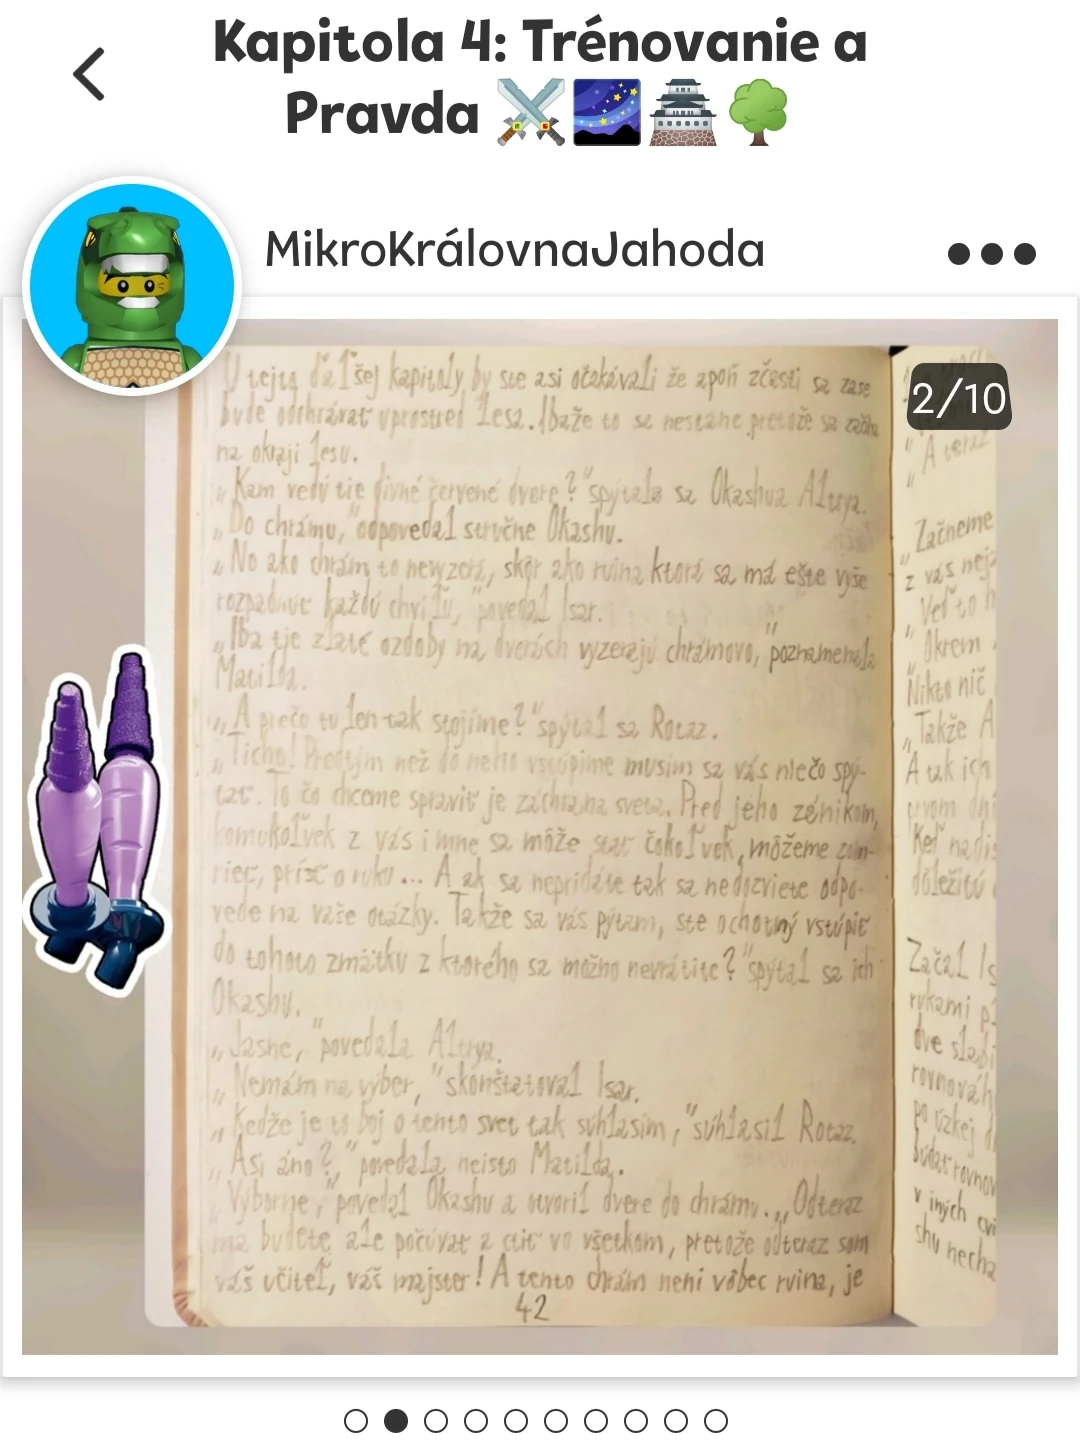 Kapitola 4: Trénovanie a
Pravda
MikroKrálovnaJahoda
2/10
V tejto ďaľšej kapitoly by ste asi očakávali že apoň zčasti sa zase
bude odohrávať uprostred lesa. Ibaže to sa nestane pretože sa začína
na okraji lesu.
„Kam vedú tie divné červené dvere?" spýtala sa Okashua Altrya.
„Do chrámu," odpovedal stručne Okashu.
„No ako chrám to nevyzerá, skôr ako ruina ktorá sa má ešte vyše
rozpadnúť každú chvíľu," povedal Isar.
„Iba tie zlaté ozdoby na dverách vyzerajú chrámovo," poznamenala
Matilda.
„A prečo tu len tak stojíme?" spýtal sa Rotaz.
„Ticho! Predtým než do neho vstúpime musím sa vás niečo spý-
tať. To čo chceme spraviť je záchrana sveta. Pred jeho zánikom,
komukoľvek z vás i mne sa môže stať čokoľvek, môžeme zom-
rieť, prísť o ruku... A ak sa nepridáte tak sa nedozviete odpo-
vede na vaše otázky. Takže sa vás pýtam, ste ochotný vstúpiť
do tohoto zmätku z ktorého sa možno nevrátite?" spýtal sa ich
Okashu.
„Jasne," povedala Altrya.
„Nemám na výber," skonštatoval Isar.
„Kedže je to boj o tento svet tak súhlasím," súhlasil Rotaz.
„Asi áno?," povedala neisto Matilda.
„Výborne," povedal Okashu a otvoril dvere do chrámu. „Odteraz
ma budete ale počúvať a ctiť vo všetkom, pretože odteraz som
váš učiteľ, váš majster! A tento chrám neni vôbec ruina, je
42
„A teraz
„Začneme
z vás nej
„Veď to
„Okrem
Nikto nič
„Takže A
A tak ich
prvom dni
Keď nadi
dôležitú
Začal Is
rukami
dve slabi
rovnováh
po úzkej
búdať rovnov
v iných cvi
shu necha